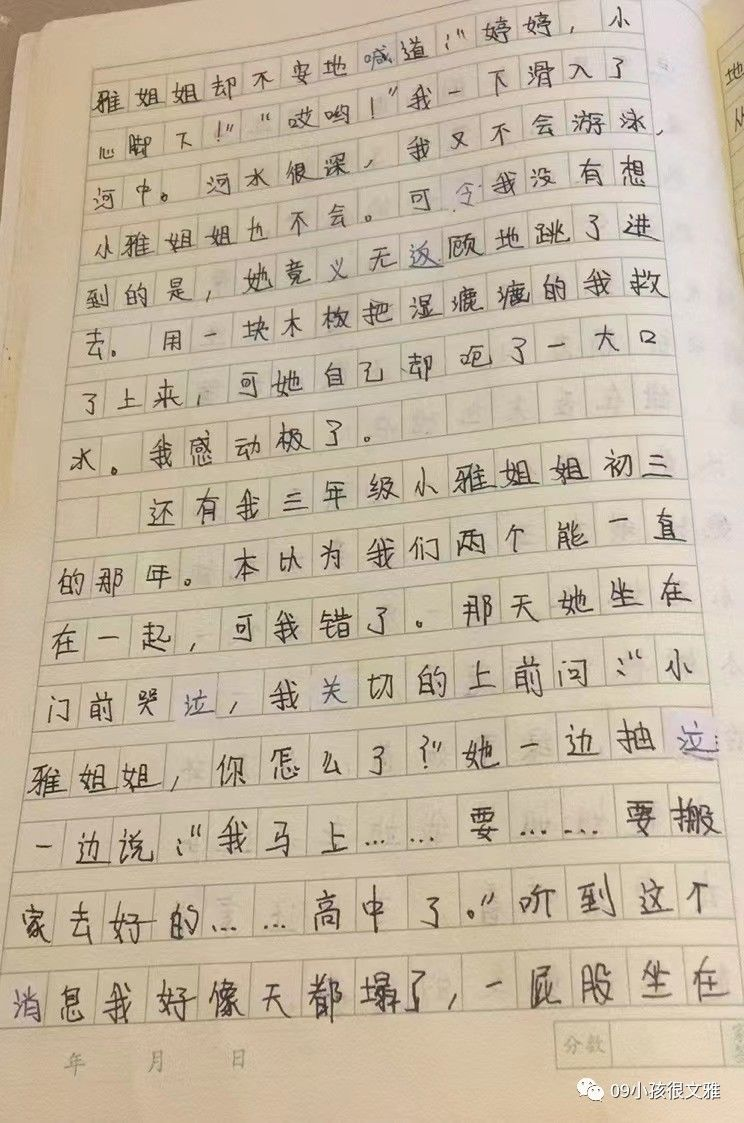 雅姐姐却不安地喊道："婷婷，小
心脚下！""哎哟！"我一下滑入了
河中。河水很深，我又不会游泳，
小雅姐姐也不会。可令我没有想
到的是，她竟义无返顾地跳了进
去。用一块木板把湿漉漉的我救
了上来，可她自己却呛了一大口
水。我感动极了。
还有我三年级小雅姐姐初三
的那年。本以为我们两个能一直
在一起，可我错了。那天她坐在
门前哭泣，我关切的上前问："小
雅姐姐，你怎么了？"她一边抽泣
一边说："我马上……要……要搬
家去好的……高中了。"听到这个
消息我好像天都塌了，一屁股坐在
年 月 日
分数
09小孩很文雅